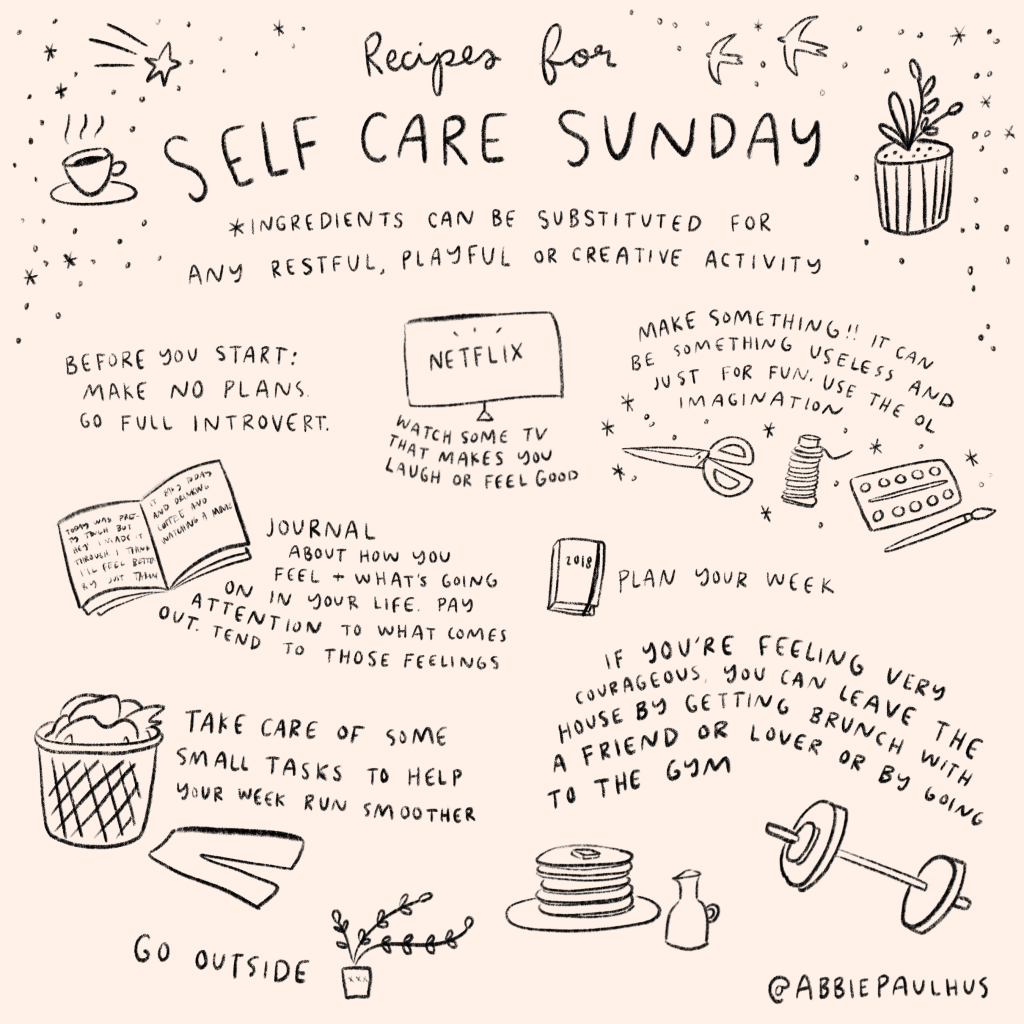 Recipes for
SELF CARE SUNDAY
*INGREDIENTS CAN BE SUBSTITUTED FOR
ANY RESTFUL, PLAYFUL OR CREATIVE ACTIVITY
BEFORE YOU START:
MAKE NO PLANS.
GO FULL INTROVERT.
NETFLIX
WATCH SOME TV
THAT MAKES YOU
LAUGH OR FEEL GOOD
MAKE SOMETHING!! IT CAN
BE SOMETHING USELESS AND
JUST FOR FUN. USE THE OL
IMAGINATION
TODAY WAS PRET-
TY TOUGH BUT
HEY I MADE IT
THROUGH I THINK
I'LL FEEL BETTE
BY JUST
AND DRINKING
COFFEE AND
WATCHING A MOVIE
JOURNAL
ABOUT HOW YOU
FEEL + WHAT'S GOING
ON IN YOUR LIFE. PAY
ATTENTION TO WHAT COMES
OUT. TEND TO THOSE FEELINGS
2018
PLAN YOUR WEEK
TAKE CARE OF SOME
SMALL TASKS TO HELP
YOUR WEEK RUN SMOOTHER
IF YOU'RE FEELING VERY
COURAGEOUS, YOU CAN LEAVE THE
HOUSE BY GETTING BRUNCH WITH
A FRIEND OR LOVER OR BY GOING
TO THE GYM
GO OUTSIDE
XXX
@ABBIEPAULHUS